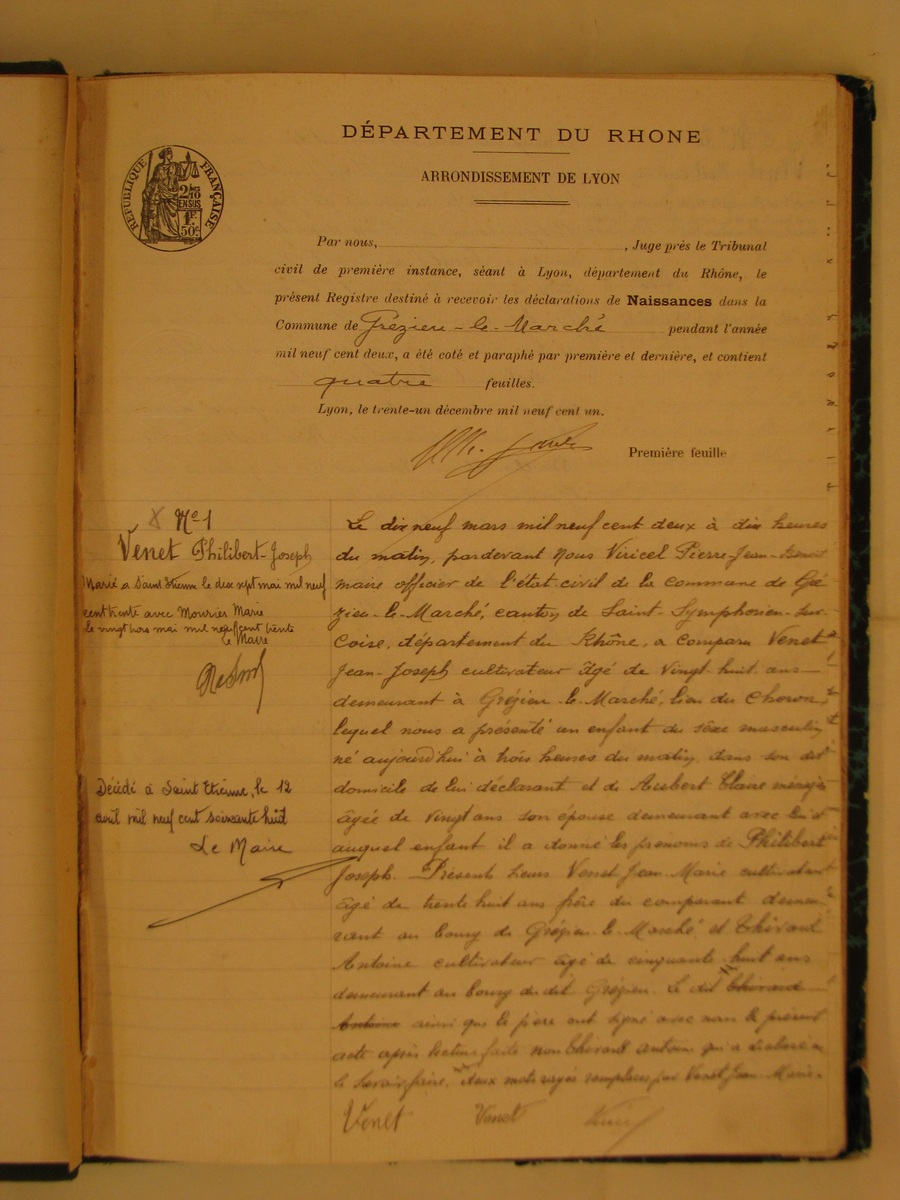 DÉPARTEMENT DU RHONE
ARRONDISSEMENT DE LYON
RÉPUBLIQUE FRANÇAISE
2/10
EN SUS
1F
50c
Par nous, , Juge près le Tribunal
civil de première instance, séant à Lyon, département du Rhône, le
présent Registre destiné à recevoir les déclarations de Naissances dans la
Commune de Grézieu-le-Marché pendant l'année
mil neuf cent deux, a été coté et paraphé par première et dernière, et contient
quatre feuilles.
Lyon, le trente-un décembre mil neuf cent un.
Première feuille
No 1
Venet Philibert-Joseph
Marié a Saint Etienne le dix sept mai mil neuf
cent trente avec Mourier Marie
le vingt trois mai mil neuf cent trente
Le Maire
Décédé à Saint Etienne, le 12
avril mil neuf cent soixante huit
Le Maire
Le dix neuf mars mil neuf cent deux à dix heures
du matin, pardevant Nous Viricel Pierre-Jean-Benoit
maire officier de l'état-civil de la commune de Gré-
zieu-le-Marché, canton de Saint-Symphorien-sur-
Coise, département du Rhône, a comparu Venet
Jean-Joseph cultivateur âgé de vingt-huit ans
demeurant à Grézieu-le-Marché, lieu du
lequel nous a présenté un enfant du sexe masculin
né aujourd'hui à trois heures du matin, dans son dit
domicile de lui déclarant et de Aubert Claire ménagère
âgée de vingt ans son épouse demeurant avec lui et
auquel enfant il a donné les prénoms de Philibert
Joseph. Présents sieurs Venet Jean Marie cultivateur
âgé de trente huit ans frère du comparant demeu-
rant au bourg de Grézieu-le-Marché et Thivard
Antoine cultivateur âgé de cinquante-huit ans
demeurant au bourg du dit Grézieu. Le dit Thivard
Antoine ainsi que le père ont signé avec nous le présent
acte après lecture faite non Thivard Antoine qui a déclaré ne
le savoir faire. deux mots rayés remplacés par Venet Jean-Marie.
Venet Venet